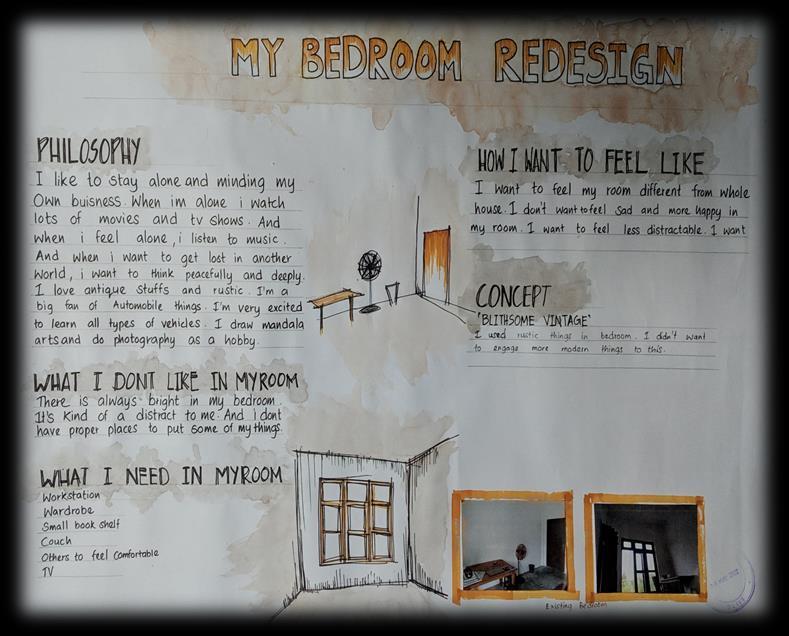 MY BEDROOM REDESIGN
PHILOSOPHY
I like to stay alone and minding my
Own buisness. When im alone i watch
lots of movies and tv shows. And
when i feel alone, i listen to music.
And when i want to get lost in another
World, i want to think peacefully and deeply.
I love antique stuffs and rustic. I'm a
big fan of Automobile things. I'm very excited
to learn all types of vehicles. I draw mandala
arts and do photography as a hobby.
WHAT I DONT LIKE IN MYROOM
There is always bright in my bedroom.
It's kind of a distract to me. And i dont
have proper places to put some of my things.
WHAT I NEED IN MYROOM
Workstation
Wardrobe
Small book shelf
Couch
Others to feel Comfortable
TV
HOW I WANT TO FEEL LIKE
I want to feel my room different from whole
house. I don't want to feel sad and more happy in
my room. I want to feel less distractable. I want
CONCEPT
'BLITHSOME VINTAGE'
I used rustic things in bedroom. I didn't want
to engage more modern things to this.
Existing Bedroom